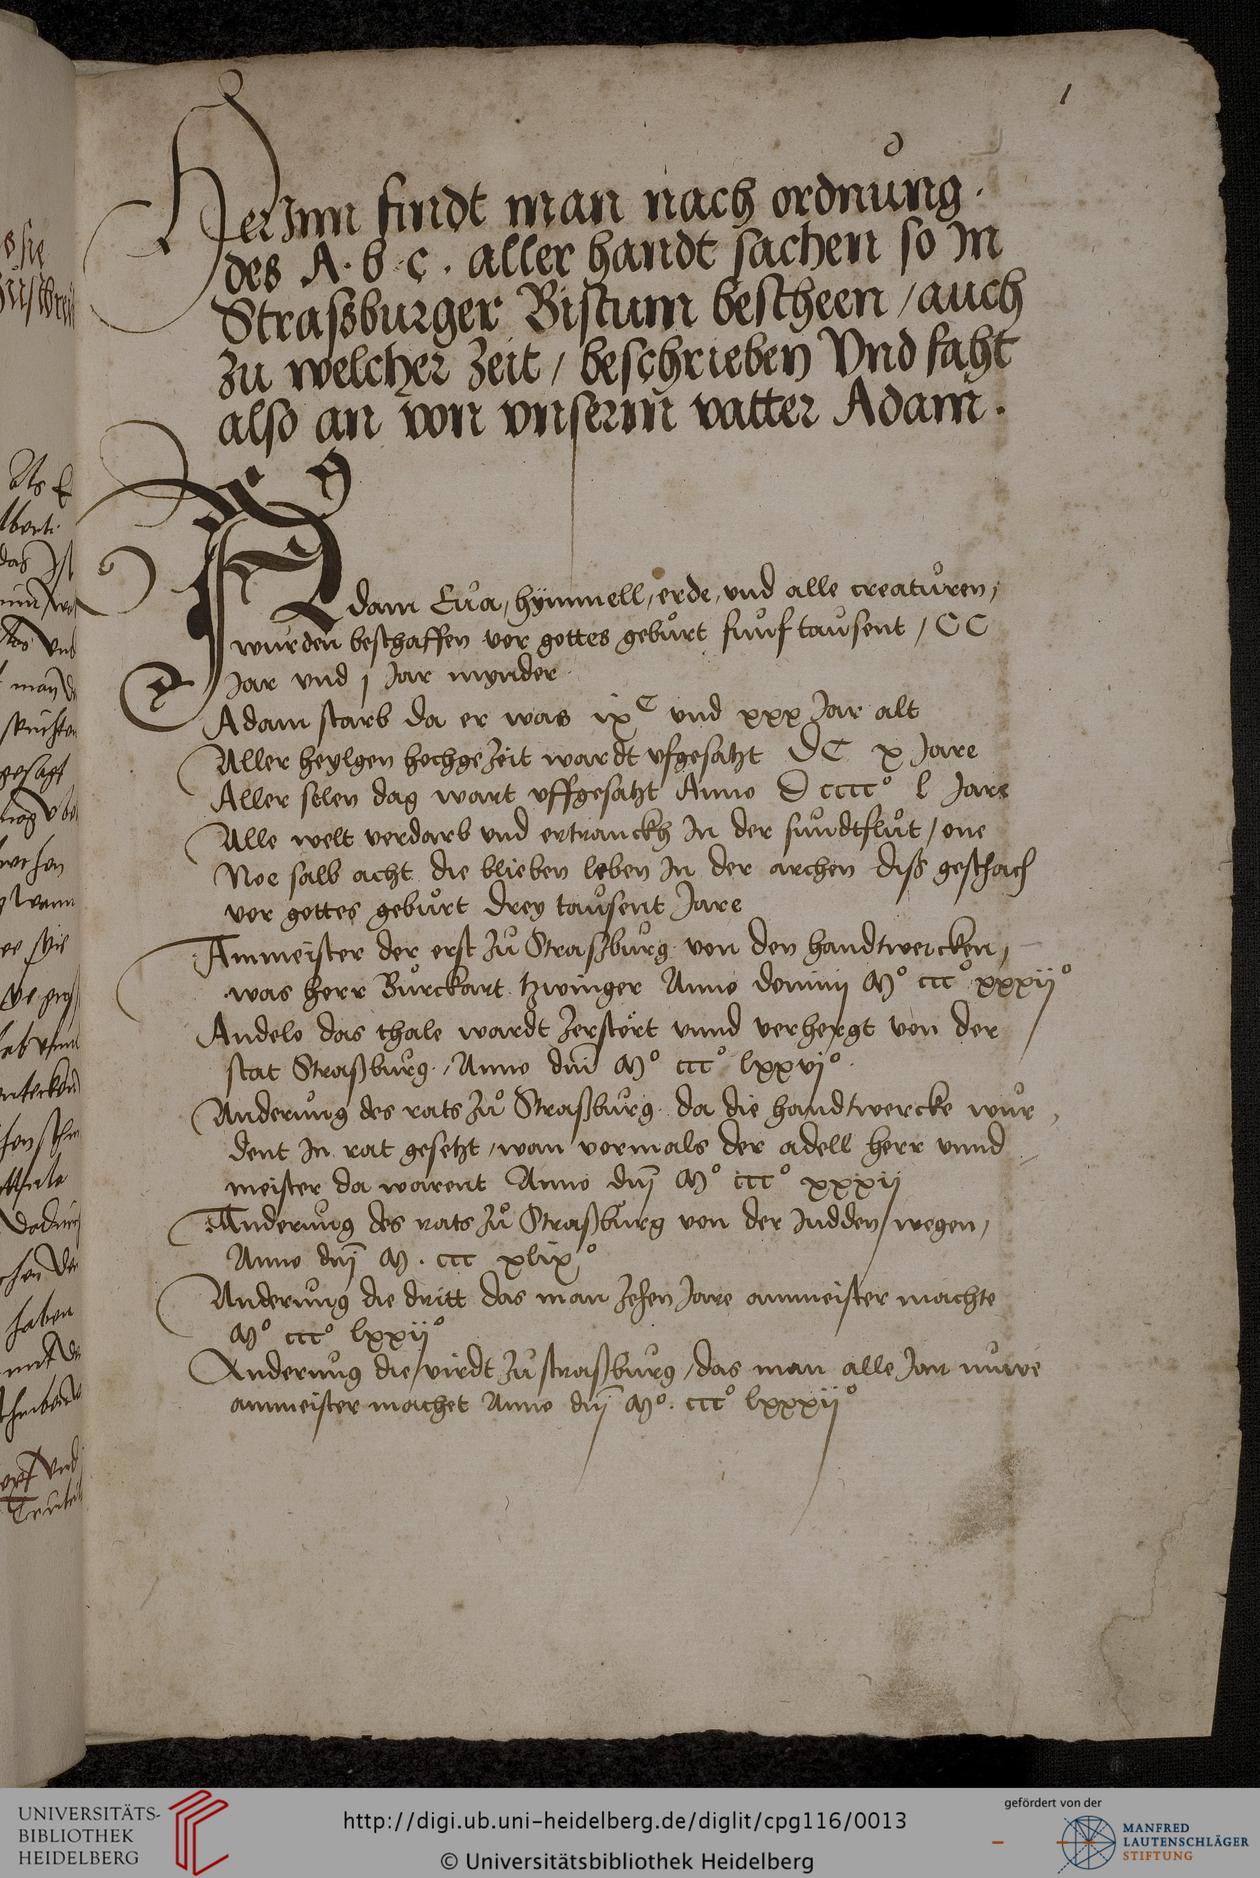 1
HerJnn findt man nach ordnung.
des A. b c. aller handt sachen so Jn
Straßburger Bistum bescheen / auch
Zu welcher Zeit / beschrieben Vnd faht
also an von vnserm vatter Adam.
Adam Eua, hÿmmell, erde, vnd alle creatůren,
wurden beschaffen vor gottes gebůrt funf taůsent / CC
Jar vnd j Jar mynder
Adam starb da er was ixC vnd xxx Jar alt
Aller heylgen hochgeZeit wardt vfgesatzt DC x Jare
Aller selen dag wart vffgesatzt Anno D cccc° l Jare
Alle welt verdarb vnd ertranckh Jn der sundtflůt / one
Noe salb acht die blieben leben Jn der archen diß geschach
vor gottes gebůrt drey taůsent Jare
Ammeister der erst Zů Straßbůrg von den handtwercken,
was herr Bůrckart tzwinger Anno dominij M° ccc° xxxij°
Andelo das thale wardt Zerstört vnnd verhergt von der
stat Straßbůrg. / Anno dnĩ M° ccc° lxxvj°.
Anderůng des rats Zů Straßbůrg da die handtwercke wůr
dent Jn rat gesetzt / wan vormals der adell herr vnnd
meister da warent Anno dnĩ M° ccc° xxxij
Anderůng des rats Zů Straßbůrg von der Judden wegen,
Anno dnĩ M. ccc xlix°
Anderůng die dritt das man Zehen Jare ammeister machte
M° ccc° lxxij°
Anderůng die virdt Zů straßbůrg / das man alle Jar nuwe
ammeister machet Anno dnĩ M°. ccc° lxxxij°
UNIVERSITÄTS-
BIBLIOTHEK
HEIDELBERG
http://digi.ub.uni-heidelberg.de/diglit/cpg116/0013
© Universitätsbibliothek Heidelberg
gefördert von der
MANFRED
LAUTENSCHLÄGER
STIFTUNG